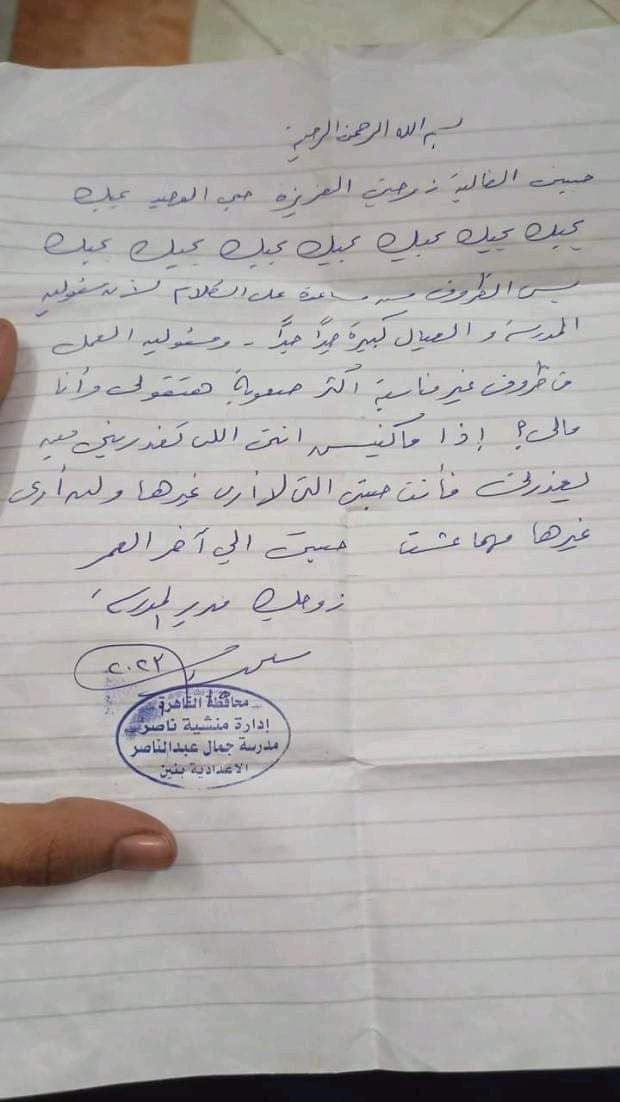 بسم الله الرحمن الرحيم
حبيبتي الغالية زوجتي العزيزة حبي الوحيد بحبك
بحبك بحبك بحبك بحبك بحبك بحبك بحبك
بس الظروف مش مساعدة على الكلام لأن مسئولية
المدرسة و العيال كبيرة جداً جداً - ومسئولية العمل
في ظروف غير مناسبة أكثر صعوبة هتقولى وأنا
مالى؟ إذا ماكنتيش انتى اللى تعذرينى مين
يعذرنى فأنت حبيبتى التى لا أرى غيرها ولن أرى
غيرها مهما عشت حبيبتى الي آخر العمر
زوجك مدير المدرسة
٢٠٢٣
محافظة القاهرة
إدارة منشية ناصر
مدرسة جمال عبدالناصر
الاعدادية بنين